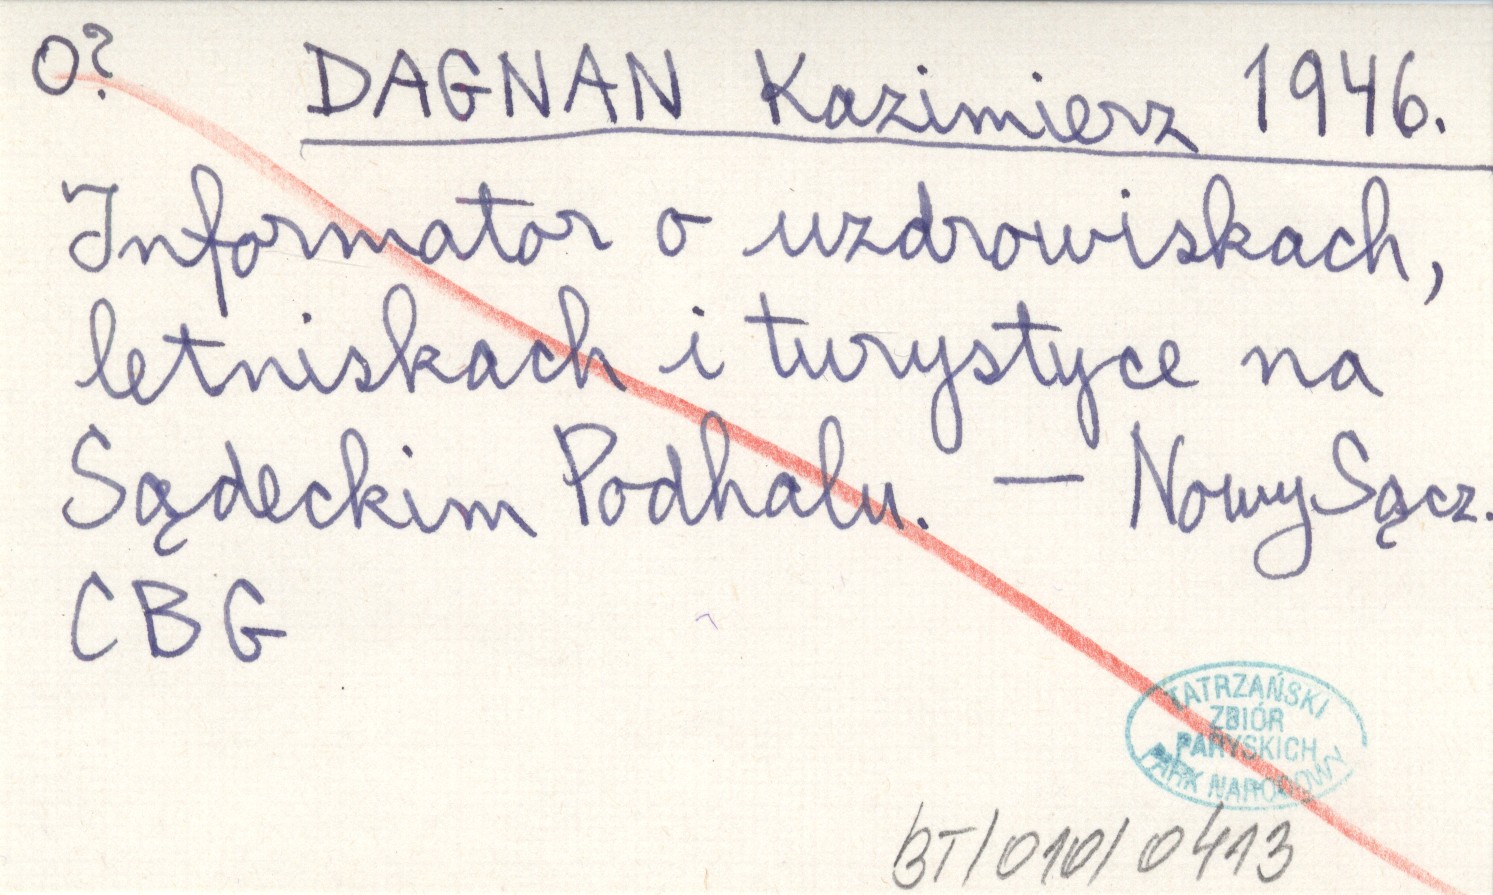 O?
DAGNAN Kazimierz 1946.
Informator o uzdrowiskach,
letniskach i turystyce na
Sądeckim Podhalu. — Nowy Sącz.
CBG
TATRZAŃSKI
ZBIÓR
PARYSKICH
PARK NARODOWY
BT/010/0413